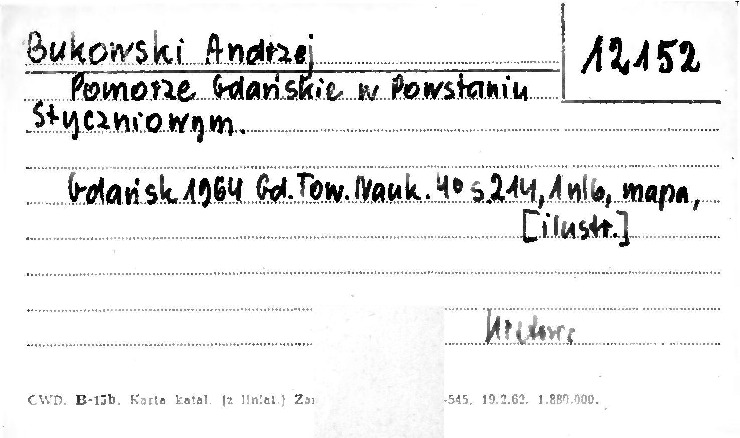 Bukowski Andrzej
12152
Pomorze Gdańskie w Powstaniu
Styczniowym.
Gdańsk 1964 Gd. Tow. Nauk. 4° s. 214, 1 nlb, mapa,
[ilustr.]
CWD. B-15b. Karta katal. (z liniat.) -545. 19.2.62. 1.880.000.